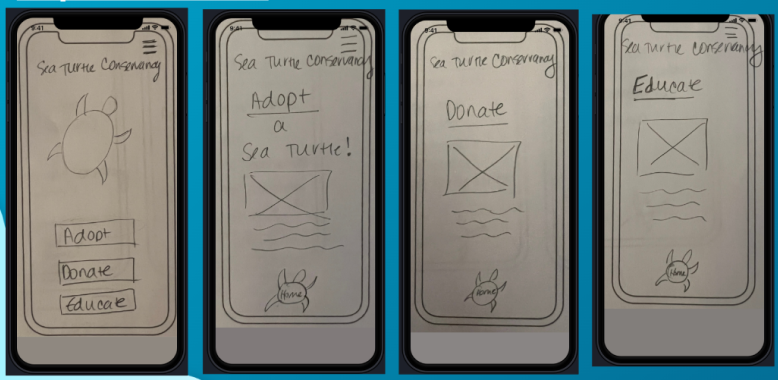 9:41
Sea Turtle Conservancy
Adopt
Donate
Educate
9:41
Sea Turtle Conservancy
Adopt
a
Sea Turtle!
Home
9:41
Sea Turtle Conservancy
Donate
Home
9:41
Sea Turtle Conservancy
Educate
Home